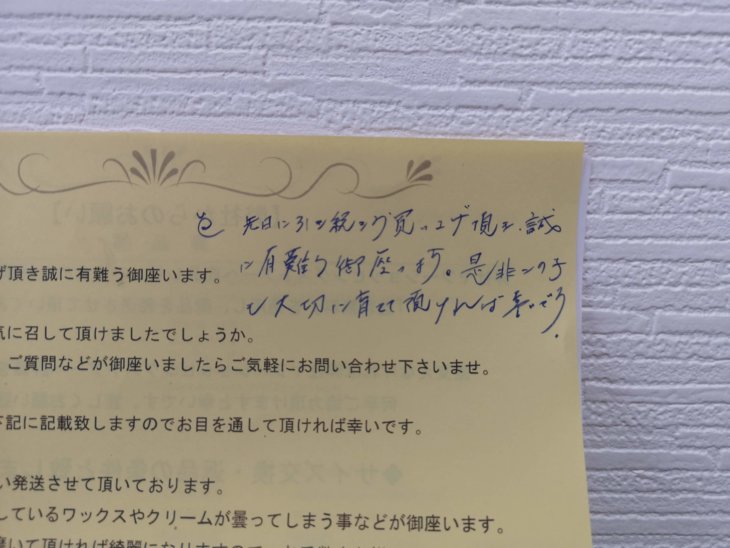 先日に引き続きお買い上げ頂き、誠
に有難う御座います。是非この子
も大切に育てて頂ければ幸いです
げ頂き誠に有難う御座います。
気に召して頂けましたでしょうか。
ご質問などが御座いましたらご気軽にお問い合わせ下さいませ。
下記に記載致しますのでお目を通して頂ければ幸いです。
い発送させて頂いております。
しているワックスやクリームが曇ってしまう事などが御座います。
磨いて頂ければ綺麗になりますので